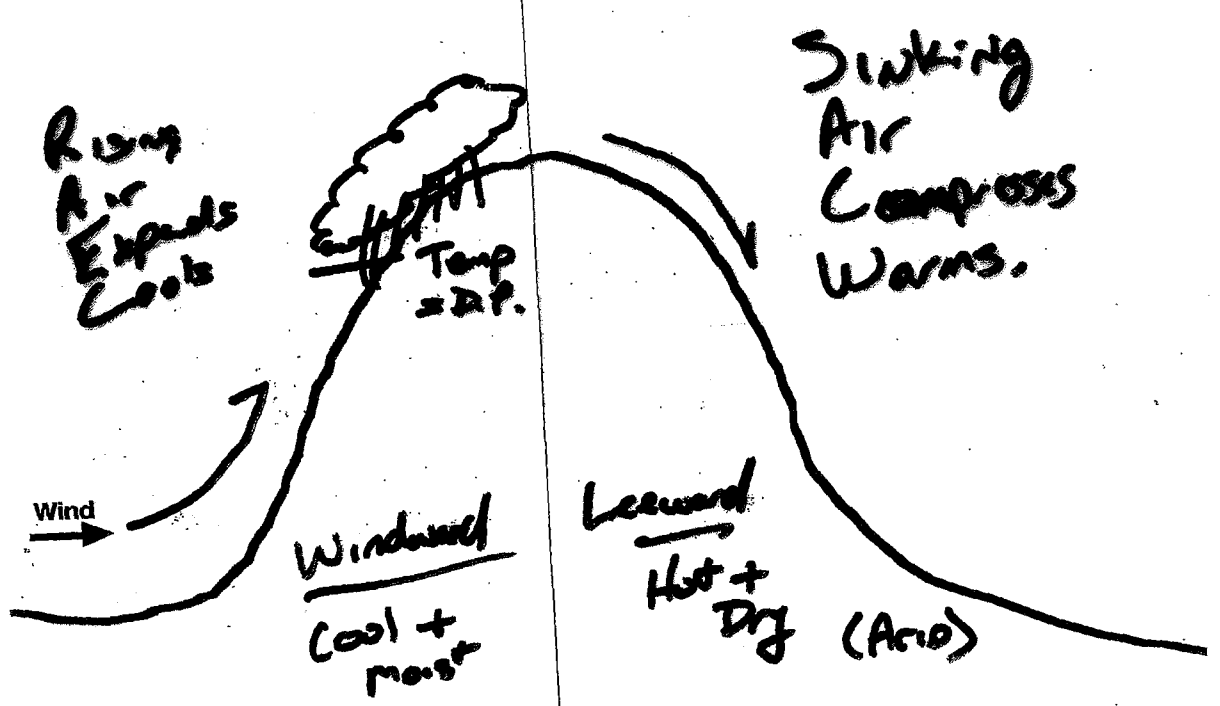 Rising
Air
Expands
Cools
Sinking
Air
Compresses
Warms.
Temp
= D.P.
Wind
Windward
Cool +
moist
Leeward
Hot +
Dry (Arid)